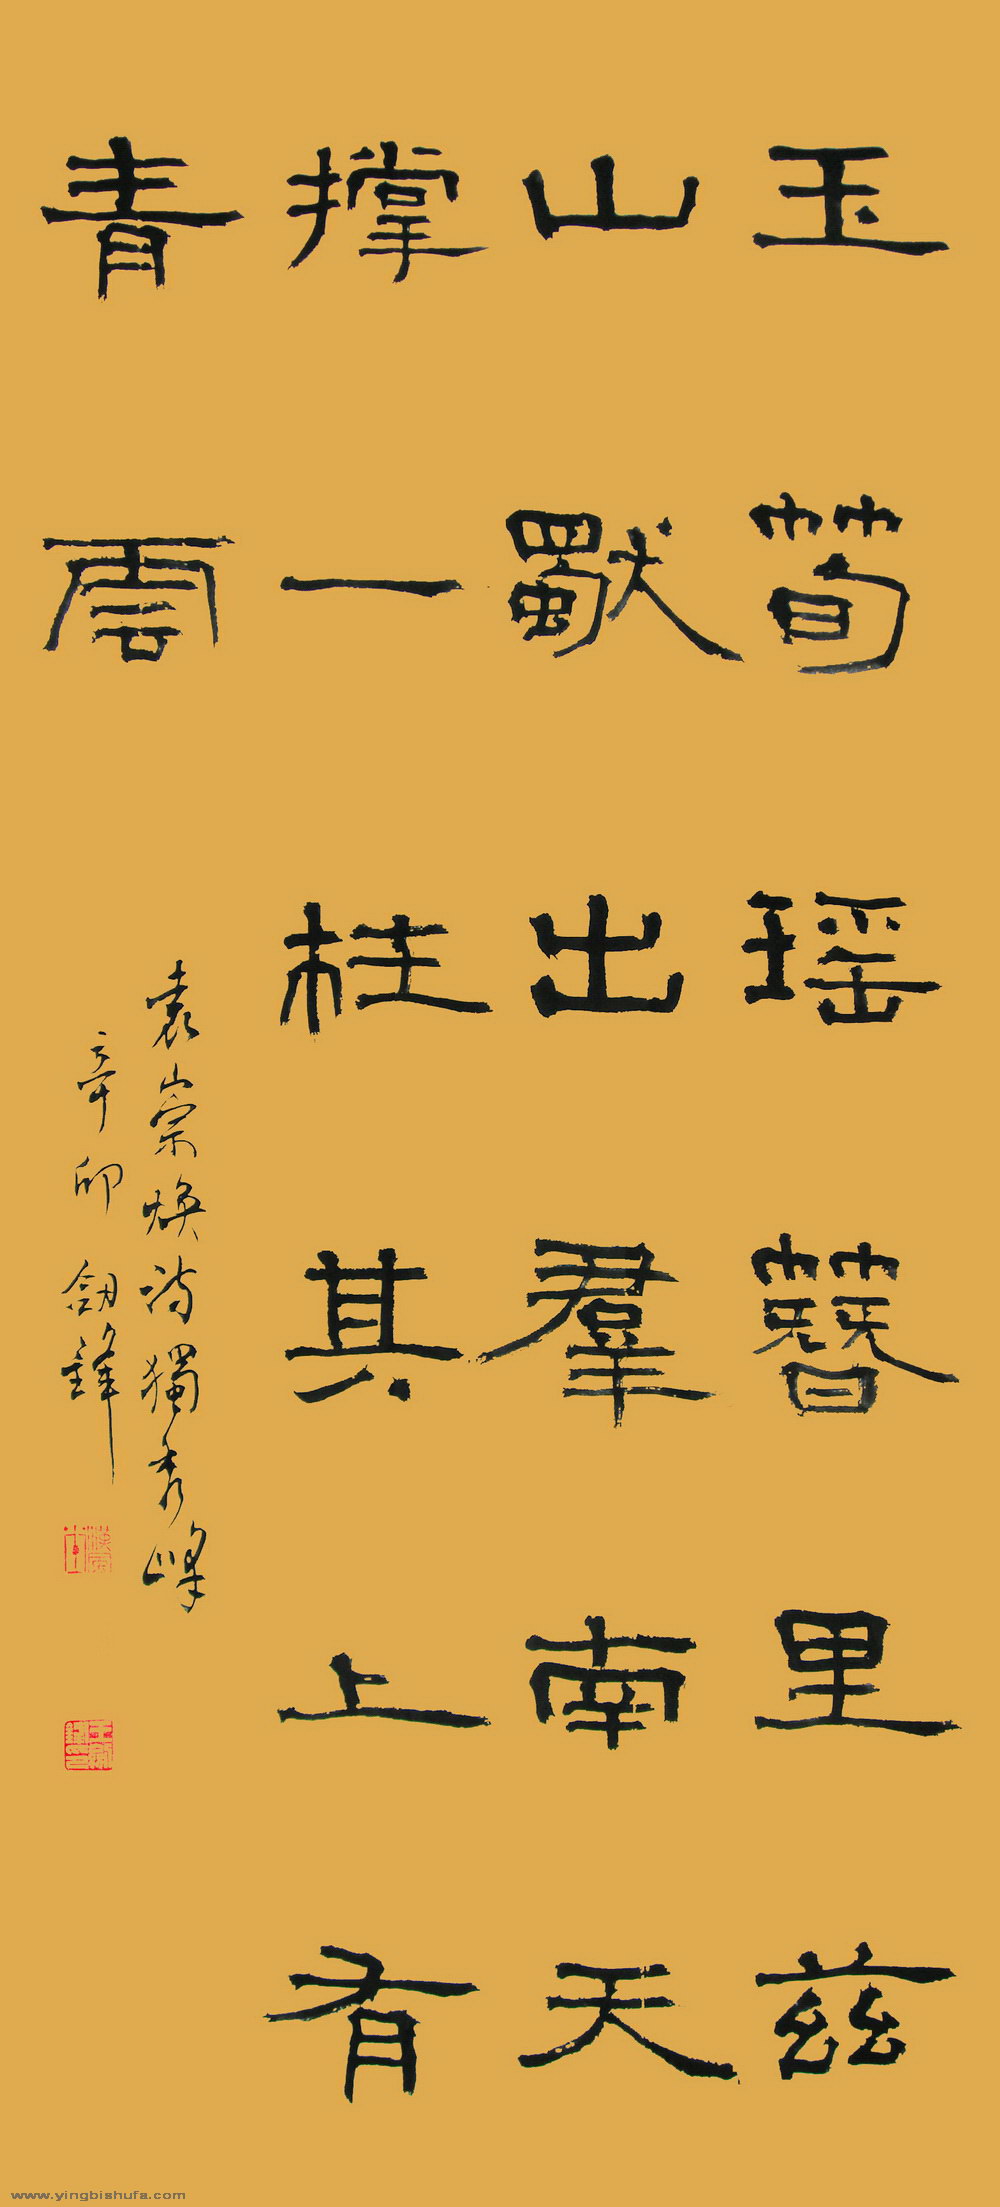 玉筍瑶簪里茲
山獸出羣南天
撑一柱其上有
青雲
袁崇焕詩獨秀峰
辛卯 劍鋒
www.yingbishufa.com